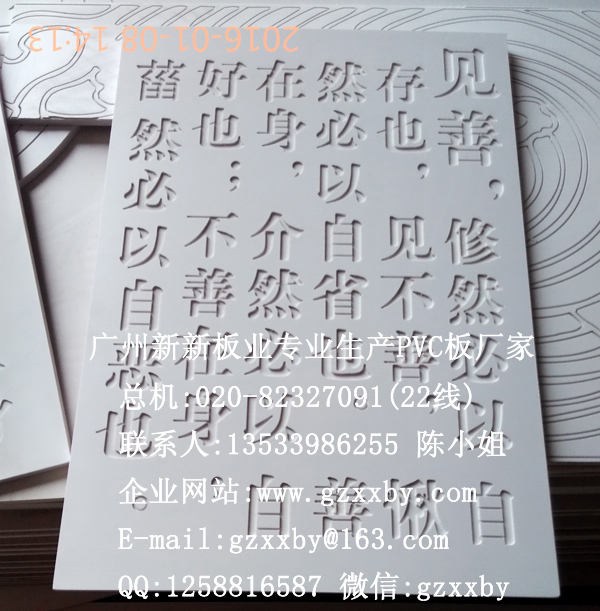 2016-01-08 14:13
见善,修然必以自
存也,见不善,愀
然必以自省也。善
在身,介然必以自
好也;不善在身,
菑然必以自恶也。
广州新新板业专业生产PVC板厂家
总机:020-82327091(22线)
联系人:13533986255 陈小姐
企业网站:www.gzxxby.com
E-mail:gzxxby@163.com
QQ:1258816587 微信:gzxxby